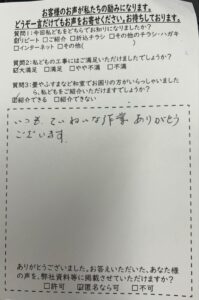 お客様の声が私たちの励みになります。
どうぞ一言だけでもお声をお寄せください。お待ちしております。
質問1：今回私どもをどちらでお知りになりましたか？
☑リピート □ご紹介 □折込チラシ □その他のチラシ・ハガキ
□インターネット □その他( )
質問2：私どもの工事にはご満足いただけましたでしょうか？
☑大満足 □満足 □やや不満 □不満
質問3：畳やふすまなど和室でお困りの方がいらっしゃいましたら、
私どもをご紹介いただけますでしょうか？
☑紹介できる □紹介できない
いつも、ていねいな作業 ありがとう
ございます
ありがとうございました。お答えいただいた、あなた様
の声を、弊社資料等に掲載させていただけますか？
□許可 ☑匿名なら可 □不可